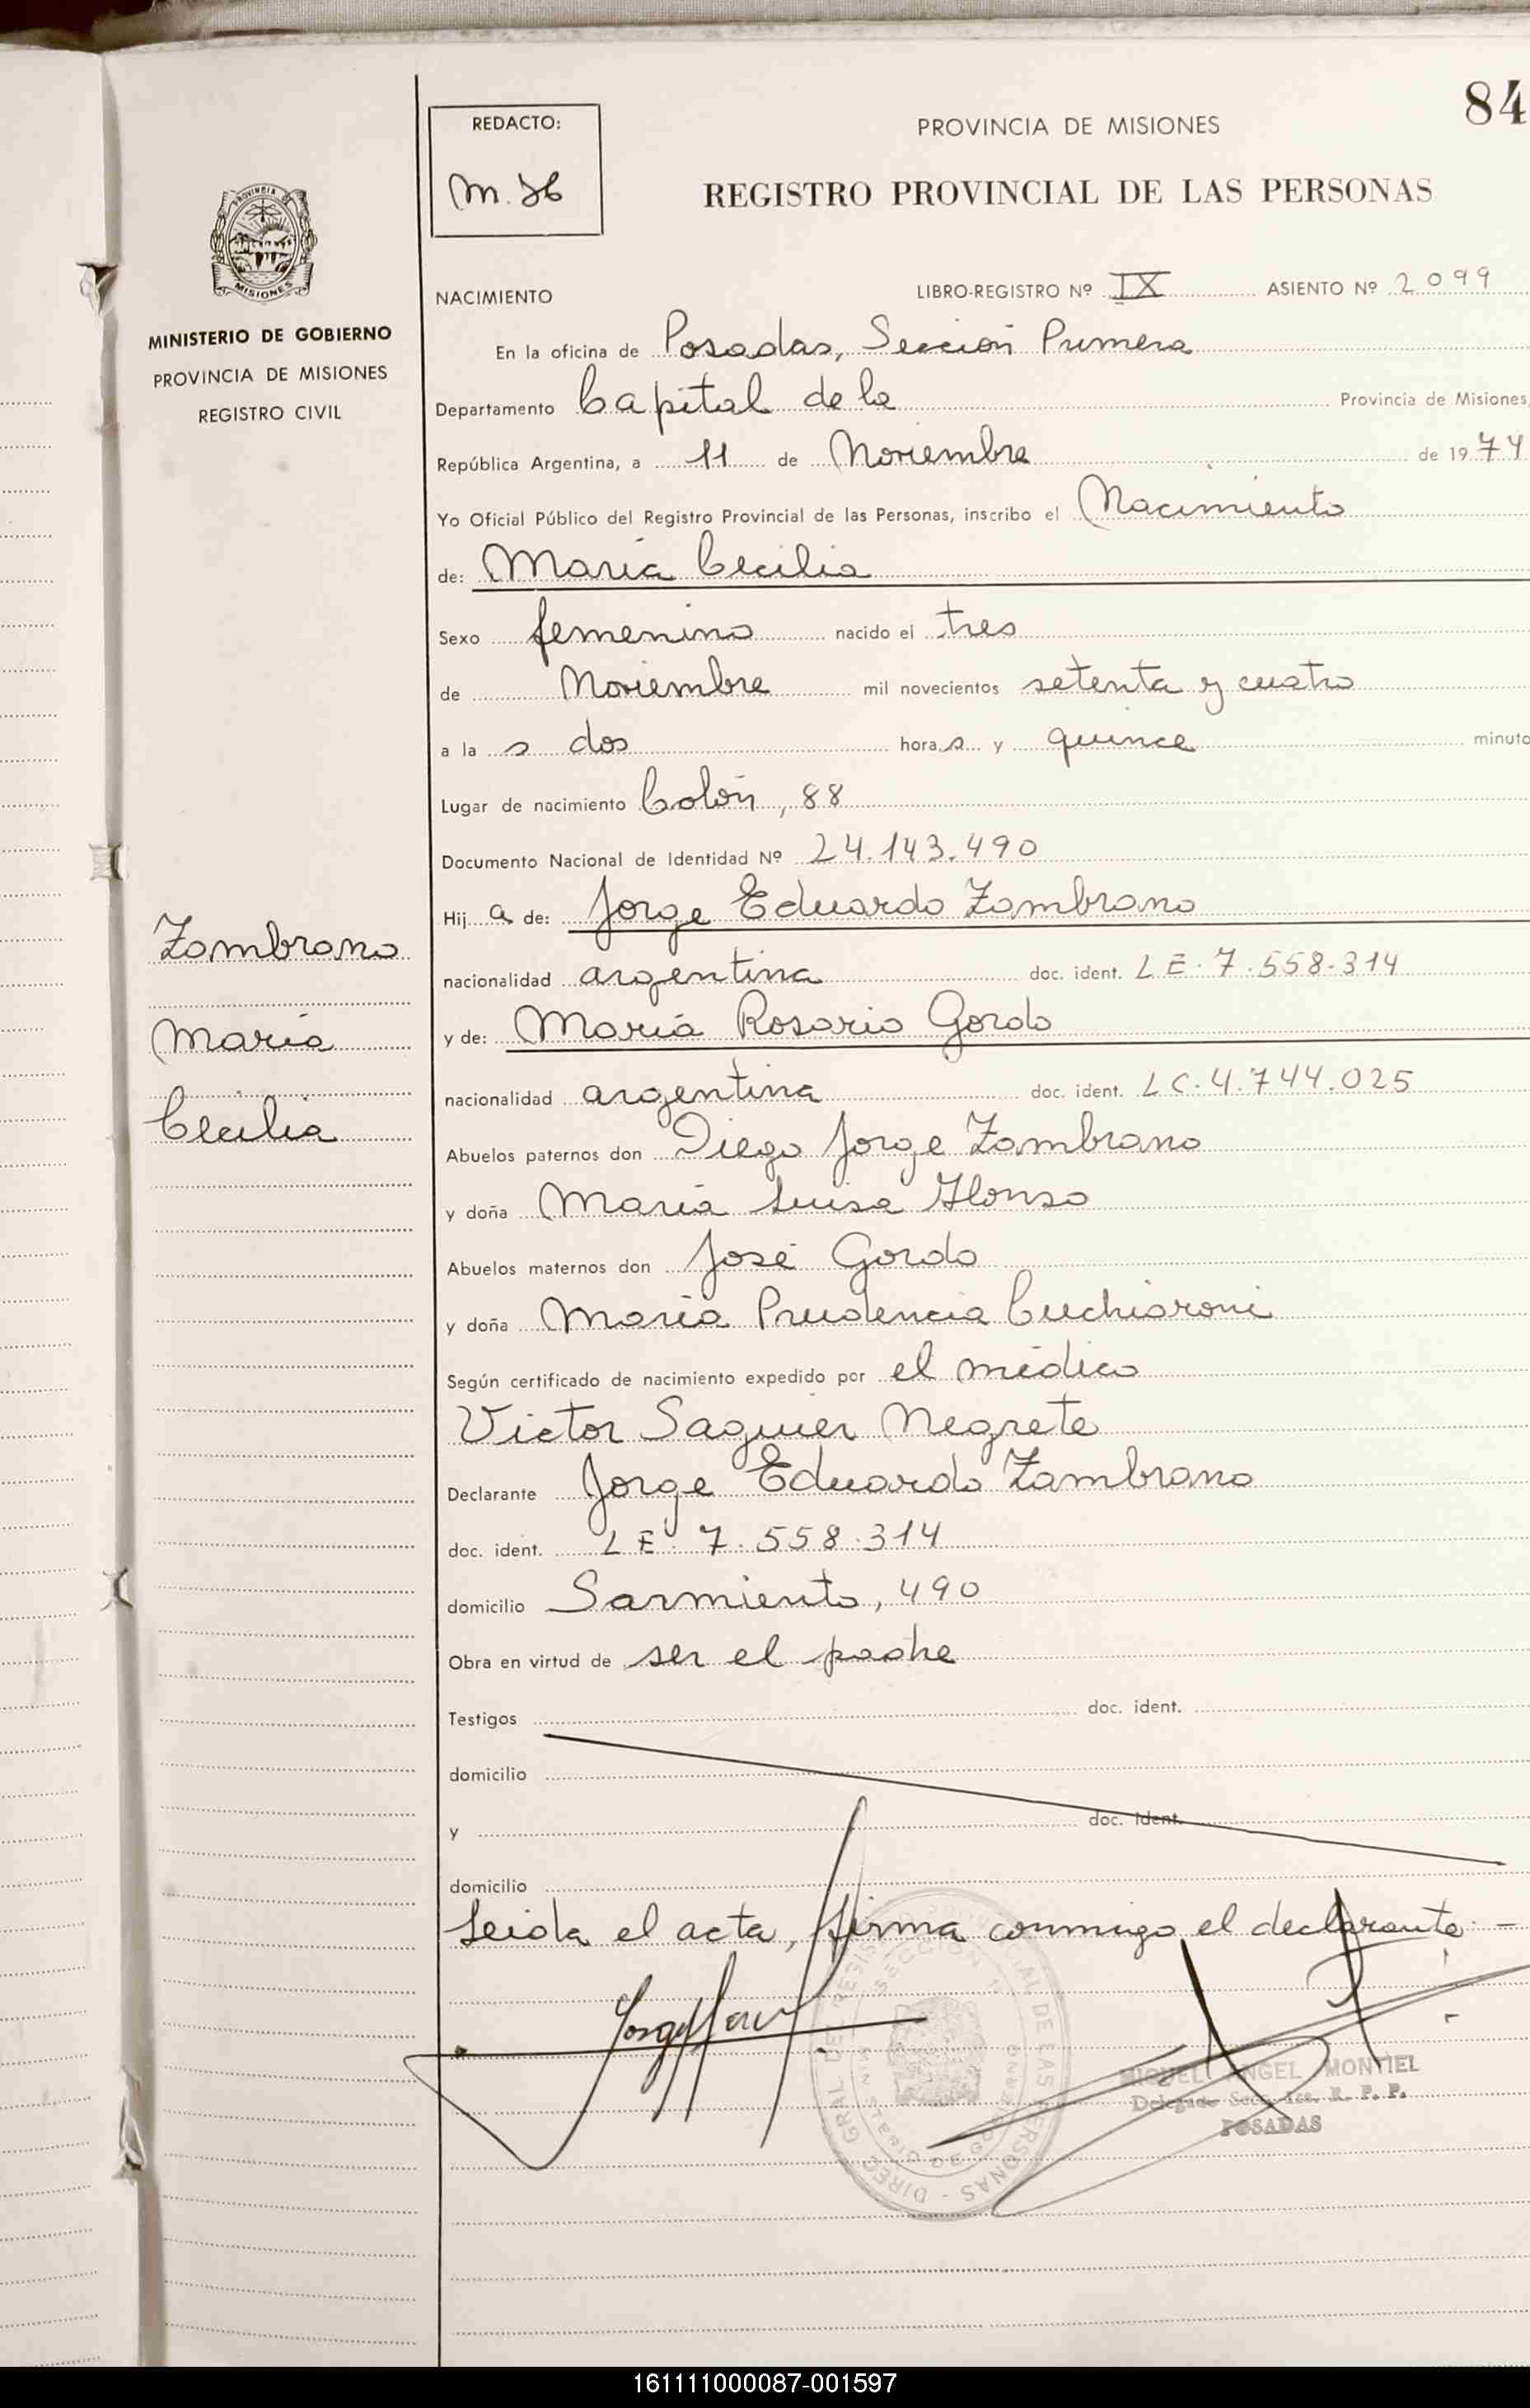 84
REDACTO:
PROVINCIA DE MISIONES
REGISTRO PROVINCIAL DE LAS PERSONAS
PROVINCIA
MISIONES
MINISTERIO DE GOBIERNO
PROVINCIA DE MISIONES
REGISTRO CIVIL
NACIMIENTO LIBRO-REGISTRO Nº IX ASIENTO Nº 2099
En la oficina de Posadas, Sección Primera
Departamento Capital de la Provincia de Misiones,
República Argentina, a 11 de Noviembre de 1974
Yo Oficial Público del Registro Provincial de las Personas, inscribo el Nacimiento
de: María Cecilia
Sexo femenino nacido el tres
de Noviembre mil novecientos setenta y cuatro
a la s dos hora s y quince minuto
Lugar de nacimiento Colón, 88
Documento Nacional de Identidad Nº 24.143.490
Hij a de: Jorge Eduardo Zambrano
nacionalidad argentina doc. ident. LE. 7.558.314
y de: María Rosario Gordo
nacionalidad argentina doc. ident. LC. 4.744.025
Abuelos paternos don Diego Jorge Zambrano
y doña María Luisa Alonso
Abuelos maternos don José Gordo
y doña María Prudencia Cuchiaroni
Según certificado de nacimiento expedido por el médico
Victor Saguier Negrete
Declarante Jorge Eduardo Zambrano
doc. ident. LE. 7.558.314
domicilio Sarmiento, 490
Obra en virtud de ser el padre
Testigos doc. ident.
domicilio
y doc. ident.
domicilio
Leida el acta, firma conmigo el declarante. -
Zambrano
María
Cecilia
MIGUEL ANGEL MONTIEL
POSADAS
161111000087-001597